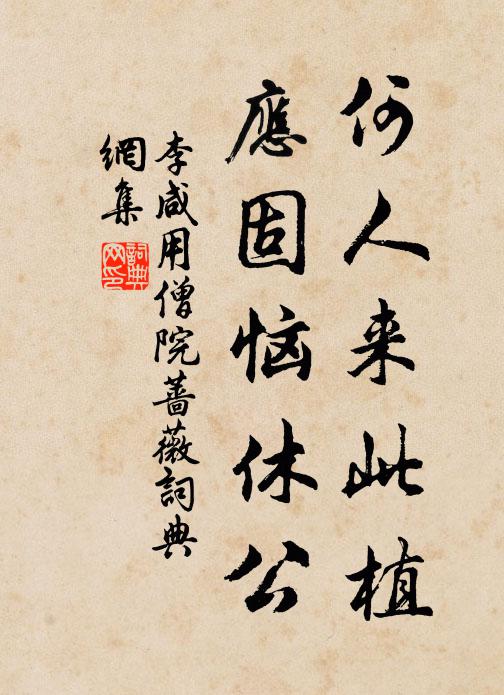 何人来此植
應固恼休公
李咸用僧院薔薇詞典
網集
詞典网印